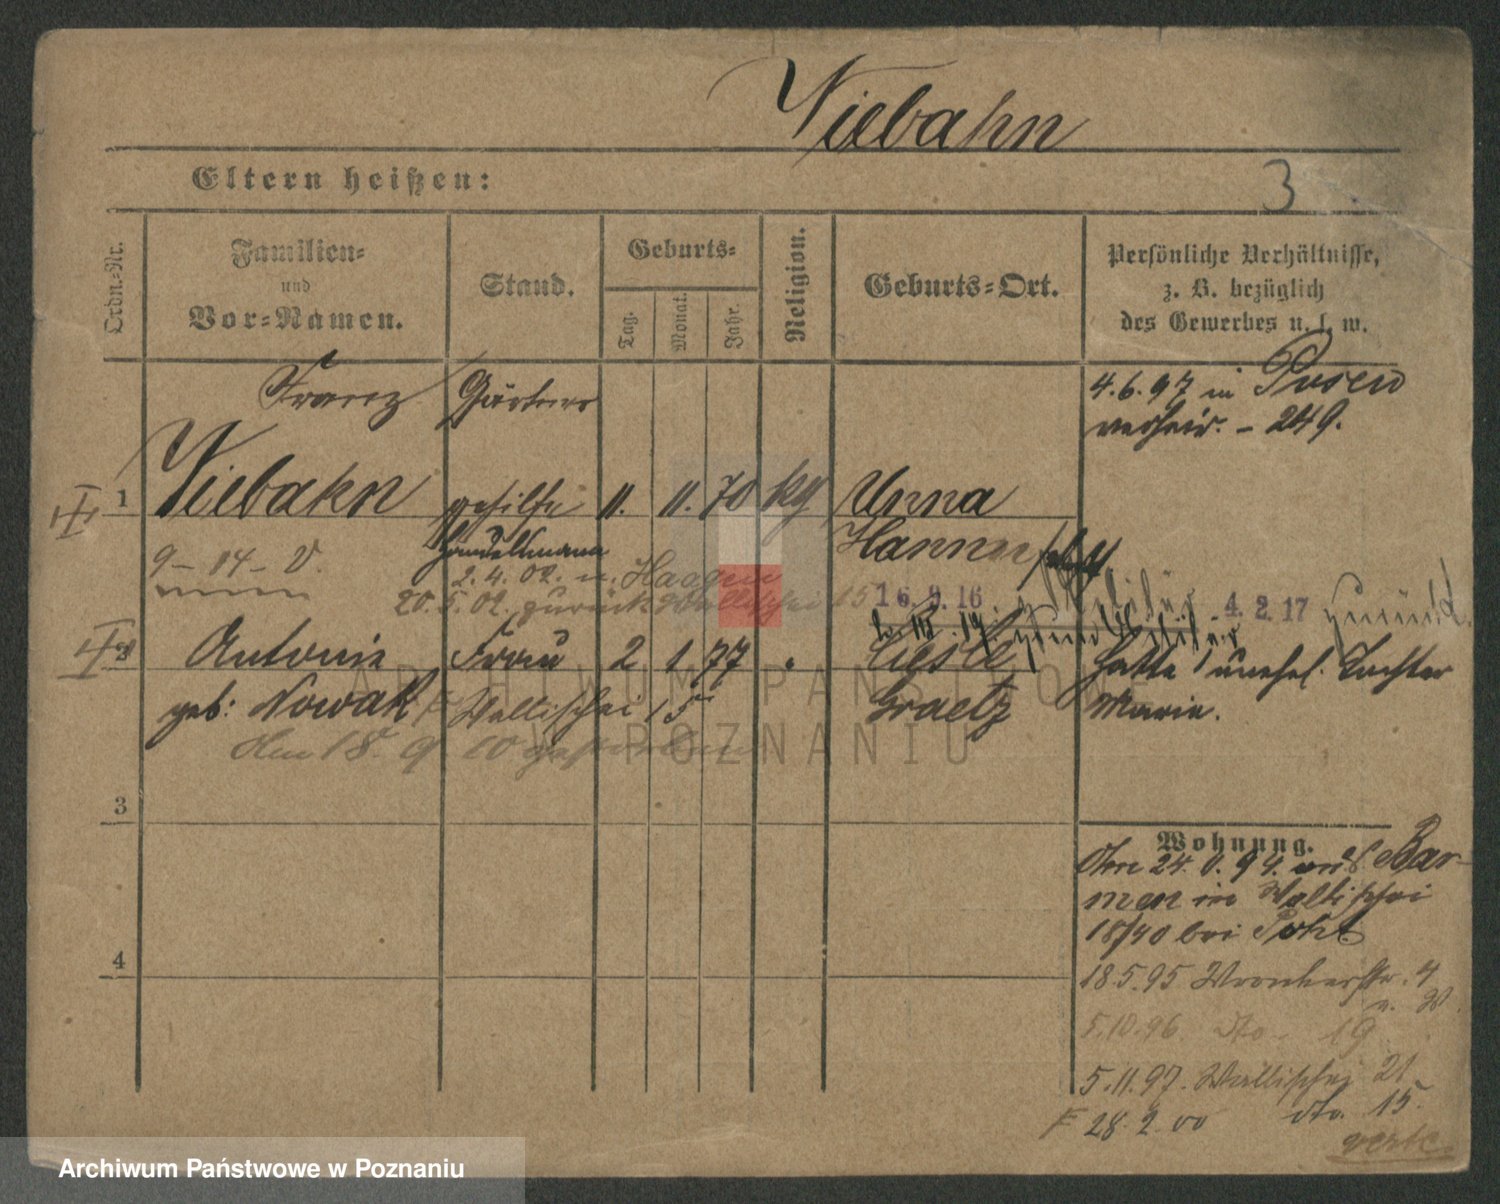 Viebahn
Eltern heißen:
3
Ordn.-Nr.
Familien-
und
Vor-Namen.
Stand.
Geburts-
Tag.
Monat.
Jahr.
Religion.
Geburts-Ort.
Persönliche Verhältnisse,
z. B. bezüglich
des Gewerbes u. s. w.
Franz Gärtner
4.6.97 in Posen
verheir. - 249.
1 Viebahn gehilfe 11. 11. 70 kg Unna
Handelsmann Hamm
9-14- V.
2.4.02. n. Haagen
20.5.02. zurück Wallischei 15
16.9.16 Militär 4.2.17 zurück.
zum Militär
2 Antonie Frau 2 1 77
geb: Nowak Wallischei 15 Graetz
hatte 1 unehel. Tochter
Marie.
Am 18. 9. 10 gestorben
3
4
Wohnung.
24. 94. aus Bar-
men in Wallischei
18/40 bei Pohl
18.5.95 Wronkerstr. 4
5.10.96. dto. 19
5.11.97. Wallischei 21
F 28.2.00 dto. 15.
verte
ARCHIWUM PAŃSTWOWE
W POZNANIU
Archiwum Państwowe w Poznaniu